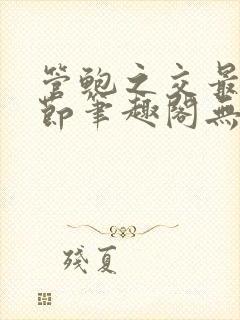 管鲍之交最
節筆趣閣無
殘夏